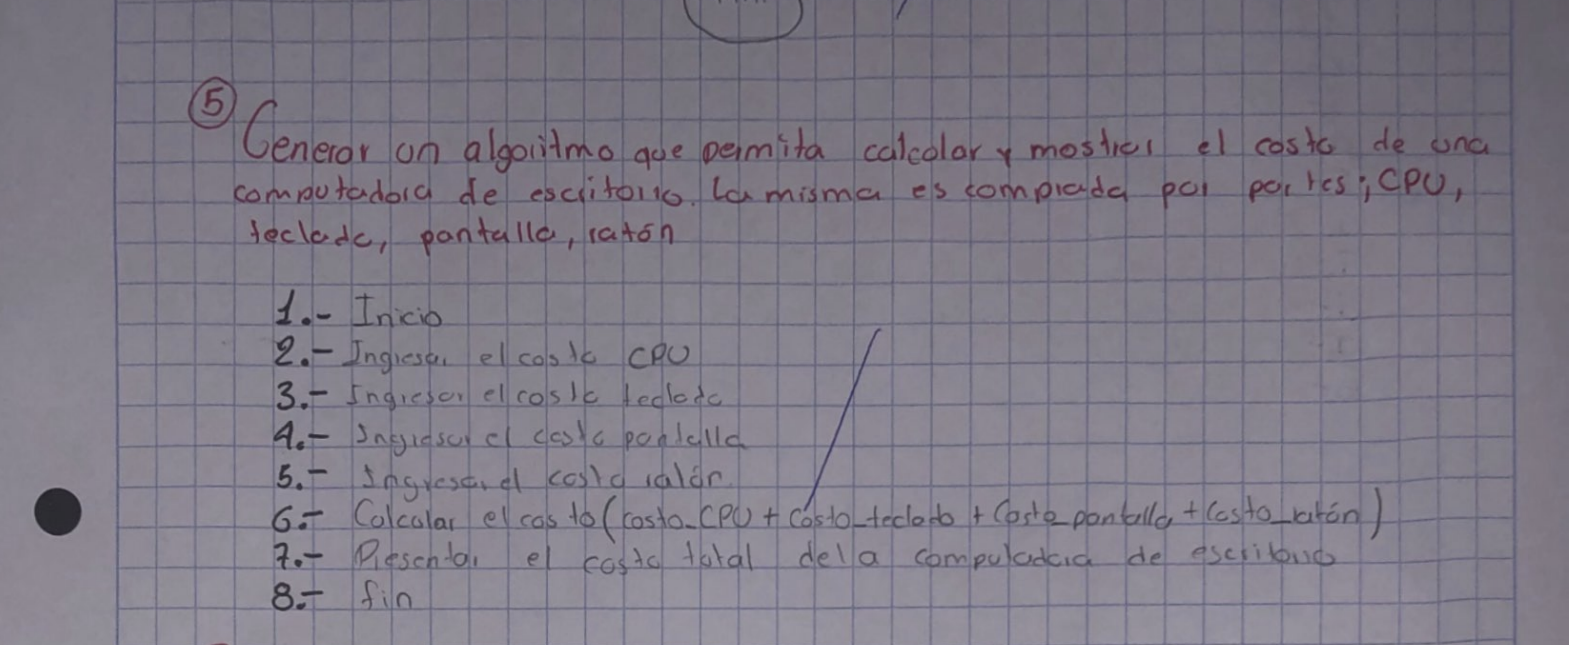 5
Generar un algoritmo que permita calcular y mostrar el costo de una
computadora de escritorio. La misma es comprada por partes; CPU,
teclado, pantalla, ratón
1.- Inicio
2.- Ingresar el costo CPU
3.- Ingresar el costo teclado
4.- Ingresar el costo pantalla
5.- Ingresar el costo ratón
6.- Calcular el costo (costo_CPU + costo_teclado + Costo_pantalla + Costo_ratón)
7.- Presentar el costo total de la computadora de escritorio
8.- fin